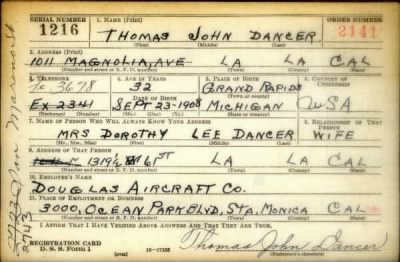 SERIAL NUMBER 1. NAME (Print) ORDER NUMBER
1216 THOMAS JOHN DANCER 2141
(First) (Middle) (Last)
2. ADDRESS (Print)
1011 MAGNOLIA AVE LA LA CAL
(Number and street or R. F. D. number) (Town) (County) (State)
3. TELEPHONE 4. AGE IN YEARS 5. PLACE OF BIRTH 6. COUNTRY OF CITIZENSHIP
32 GRAND RAPIDS
EX 2341 SEPT-23-1908 MICHIGAN USA
7. NAME OF PERSON WHO WILL ALWAYS KNOW YOUR ADDRESS 8. RELATIONSHIP OF THAT PERSON
MRS DOROTHY LEE DANCER WIFE
(Mr., Mrs., Miss) (First) (Middle) (Last)
9. ADDRESS OF THAT PERSON
1319½ W 61ST LA LA CAL
(Number and street or R. F. D. number) (Town) (County) (State)
10. EMPLOYER'S NAME
DOUGLAS AIRCRAFT CO.
11. PLACE OF EMPLOYMENT OR BUSINESS
3000, OCEAN PARK BLVD, STA, MONICA CAL
(Number and street or R. F. D. number) (Town) (County) (State)
I AFFIRM THAT I HAVE VERIFIED ABOVE ANSWERS AND THAT THEY ARE TRUE.
REGISTRATION CARD
D. S. S. Form 1
Thomas John Dancer
(Registrant's signature)